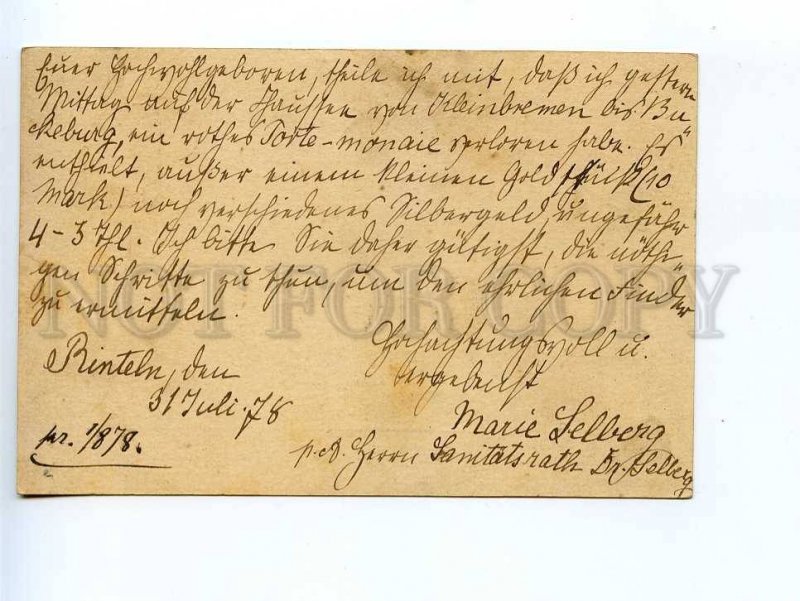 Euer Hochwohlgeboren, theile ich mit, daß ich gestern
Mittag auf der Chaussee von Kleinbremen bis Bü
ckeburg, ein rothes Porte-monaie verloren habe. Es
enthielt, außer einem kleinen Goldstück (10
Mark) noch verschiedenes Silbergeld, ungefähr
4-3 Thl. Ich bitte Sie daher gütigst, die nöthi
gen Schritte zu thun, um den ehrlichen Finder
zu ermitteln.
Hochachtungsvoll u.
ergebenst
Rinteln, den
31 Juli. 78
Marie Selberg
p. A. Herrn Sanitätsrath Dr. Selberg
pr. 1/8 78.
NOT FOR COPY